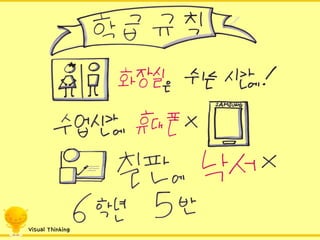 학급규칙
화장실은 쉬는 시간에!
수업시간에 휴대폰 X
SAMSUNG
칠판에 낙서 X
6학년 5반
Visual Thinking